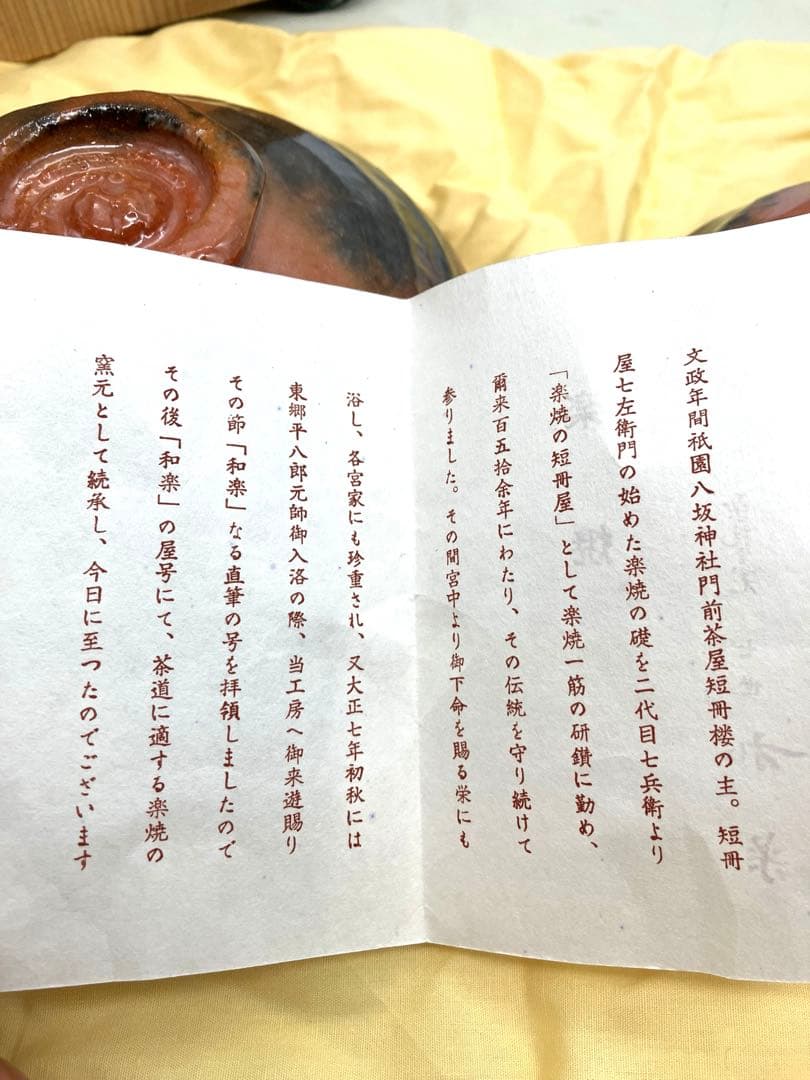 文政年間祇園八坂神社門前茶屋短冊楼の主。短冊
屋七左衛門の始めた楽焼の礎を二代目七兵衛より
「楽焼の短冊屋」として楽焼一筋の研鑽に勤め、
爾来百五拾余年にわたり、その伝統を守り続けて
参りました。その間宮中より御下命を賜る栄にも
浴し、各宮家にも珍重され、又大正七年初秋には
東郷平八郎元師御入洛の際、当工房へ御来遊賜り
その節「和楽」なる直筆の号を拝領しましたので
その後「和楽」の屋号にて、茶道に適する楽焼の
窯元として続承し、今日に至つたのでございます